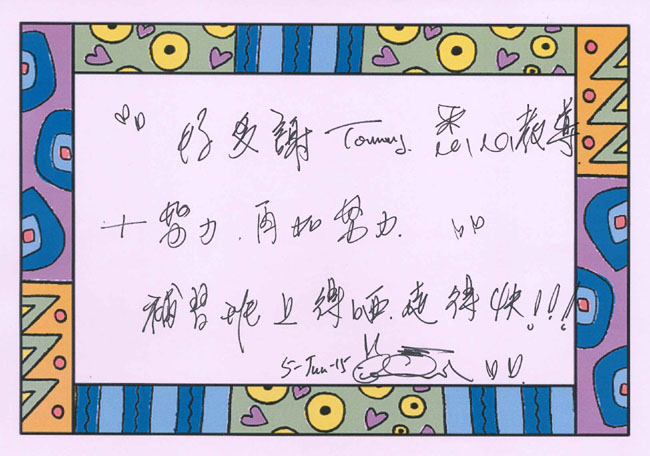 好多謝 Tommy. 悉心教導
+ 努力. 再加努力.
補習班上得晒. 走得快!!!
5-Jun-15